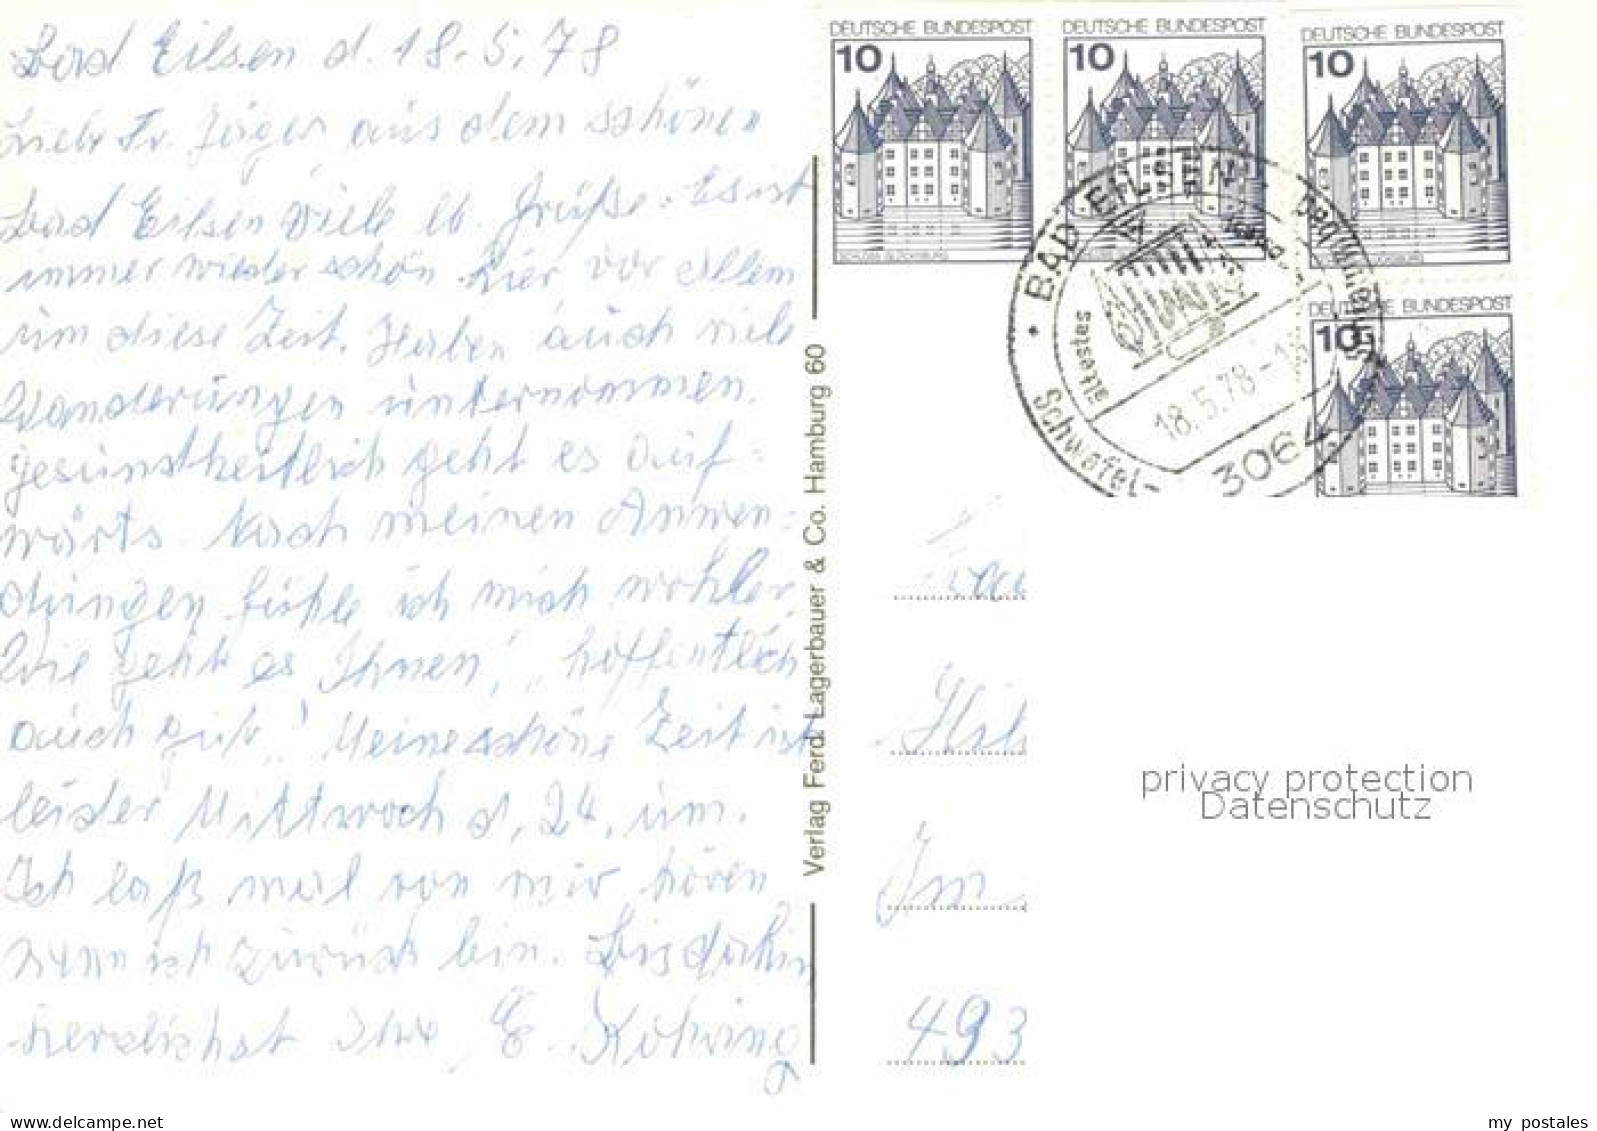 Bad Eilsen d. 18.5.78
Liebe Fr. Jäger aus dem schönen
Bad Eilsen viele lb. Grüße. Es ist
immer wieder schön hier vor allem
um diese Zeit. Haben auch viele
Wanderungen unternommen.
Gesundheitlich geht es auf=
wärts. Nach meinen Anwen=
dungen fühle ich mich wohler
Wie geht es Ihnen, hoffentlich
auch gut! Meine schöne Zeit ist
leider Mittwoch d. 24. um.
Ich laß mal von mir hören
wenn ich zurück bin. Bis dahin
herzlichst Ihre E. Köhring
Verlag Ferd. Lagerbauer & Co. Hamburg 60
DEUTSCHE BUNDESPOST
10
SCHLOSS GLÜCKSBURG
DEUTSCHE BUNDESPOST
10
DEUTSCHE BUNDESPOST
10
DEUTSCHE BUNDESPOST
10
BAD EILSEN
ältestes
Schwefel-
18.5.78
3064
Im
493
privacy protection
Datenschutz
delcampe.net
my_postales